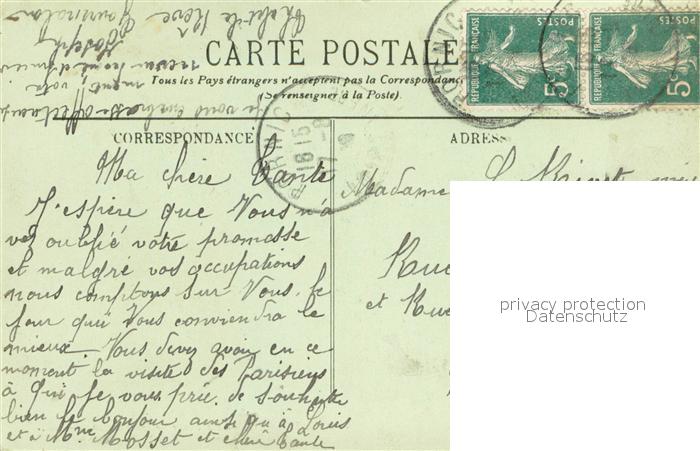 CARTE POSTALE
Tous les Pays étrangers n'acceptent pas la Correspondance
(Se renseigner à la Poste).
REPUBLIQUE FRANÇAISE
POSTES
5c
REPUBLIQUE FRANÇAISE
POSTES
5c
PORNIC
PORNIC
CORRESPONDANCE
ADRES
Ma chère Tante
J'espère que Vous n'a
vez oublié votre promesse
et malgré vos occupations
nous comptons sur Vous. le
jour qui Vous conviendra le
mieux. Vous devez avoir en ce
moment la visite des Parisiens
à qui je vous prie de souhaiter
bien le bonjour ainsi qu'à Louis
et à Mme Mosset et chère Tante
je vous embrasse
neveu
Joseph
Madame
Rue
et
privacy protection
Datenschutz